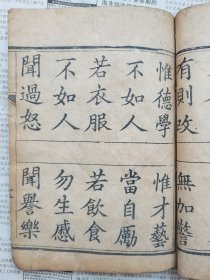 有則改 無加警
惟德學 惟才藝
不如人 當自勵
若衣服 若飲食
不如人 勿生慼
聞過怒 聞譽樂